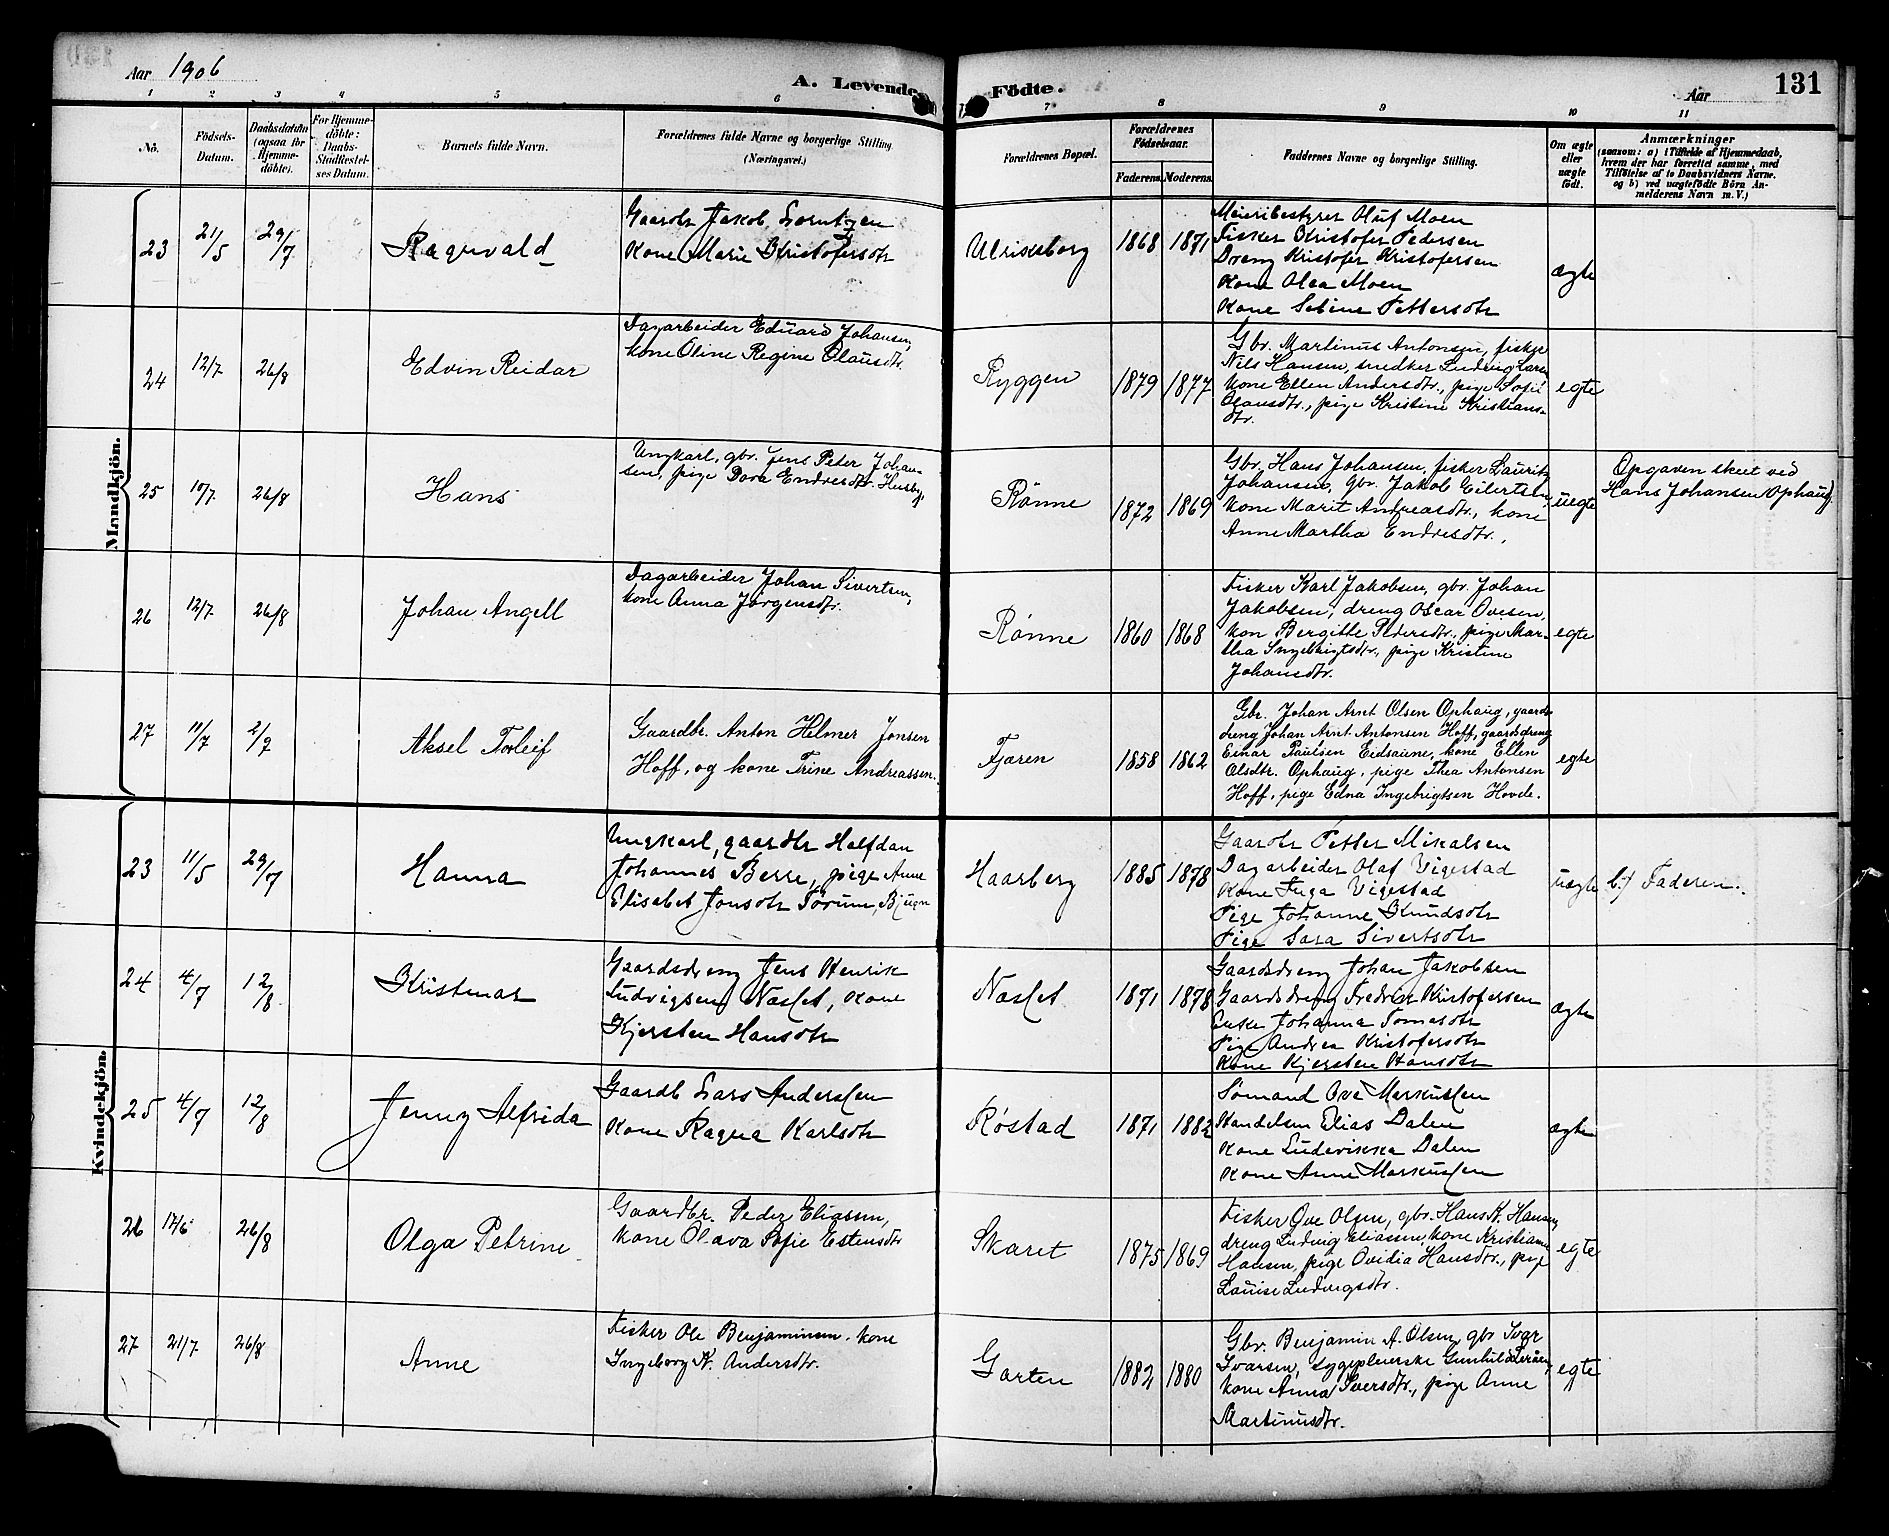 Aar 1906
A. Levende Födte.
131
Aar
1 2 3 4 5 6 7 8 9 10 11
No.
Födsels-
Datum.
Daabsdatum
(ogsaa for
Hjemme-
döbte).
For Hjemme-
döbte:
Daabs-
Stadfæstel-
ses Datum.
Barnets fulde Navn.
Forældrenes fulde Navne og borgerlige Stilling
(Næringsvei.)
Forældrenes Bopæl.
Forældrenes
Födselsaar.
Faderens.
Moderens.
Faddernes Navne og borgerlige Stilling.
Om ægte
eller
uægte
födt.
Anmærkninger
(saasom: a) i Tilfælde af Hjemmedaab,
hvem der har forrettet samme, med
Tilföielse af to Daabsvidners Navne,
og b) ved uægtefödte Börn An-
melderens Navn m. V.)
Mandkjön.
23
21/5
29/7
Ragnvald
Gaardbr Jakob Lorntzen
Kone Marie Kristofersdtr
Ulriksborg
1868
1871
Meieribestyrer Oluf Moen
Fisker Kristofer Pedersen
Dreng Kristofer Kristofersen
Kone Olea Moen
Kone Sebine Pettersdtr
ægte
24
12/7
26/8
Edvin Reidar
Dagarbeider Eduard Johansen,
kone Oline Regine Olausdtr.
Ryggen
1879
1877
Gbr. Martinus Antonsen, fisker
Nils Hansen, snedker Ludvig Larsen
kone Ellen Andersdtr., pige Sofie
Olausdtr., pige Kristine Kristians-
dtr.
egte
25
10/7
26/8
Hans
Ungkarl, gbr. Jens Peter Johan-
sen, pige Dora Endresdtr. Husby,
Rønne
1872
1869
Gbr. Hans Johansen, fisker Lauritz
Johansen, gbr. Jakob Eilertsen,
kone Marit Andreasdtr., kone
Anne Martha Endresdtr.,
uegte
Opgaven skeet ved
Hans Johansen Ophaug).
26
12/7
26/8
Johan Angell
Dagarbeider Johan Sivertsen,
kone Anna Jørgensdtr.
Rønne
1860
1868
Fisker Karl Jakobsen, gbr. Johan
Jakobsen, dreng Oscar Ovesen,
kon Bergitte Pedersdtr., pige Mar-
tha Ingebrigtsdtr., pige Kristine
Johansdtr.
egte
27
11/7
2/9
Aksel Torleif
Gaardbr. Anton Helmer Jonsen
Hoff, og kone Trine Andreassen.
Fjæren
1858
1862
Gbr. Johan Arnt Olsen Ophaug, gaards-
dreng Johan Arnt Antonsen Hoff, gaardsdreng
Einar Paulsen Eidsaune, kone Ellen
Olsdtr. Ophaug, pige Thea Antonsen
Hoff, pige Edna Ingebrigtsen Hovde.
egte
Kvindekjön.
23
11/5
29/7
Hanna
Ungkarl, gaardbr Halfdan
Johannes Berre, pige Anne
Elisabet Jonsdtr Tørum, Bjugn
Haarberg
1885
1878
Gaardbr Petter Mikalsen
Dagarbeider Olaf Vigestad
Kone Inga Vigestad
Pige Johanne Knudsdtr
Pige Sara Sivertsdtr
uægte
b.) Faderen.
24
4/7
12/8
Kristmar
Gaardsdreng Jens Henrik
Ludvigsen Næslet, Kone
Kjersten Hansdtr
Næslet
1871
1878
Gaardsdreng Johan Jakobsen
Gaardsdreng Fredrik Kristofersen
Enke Johanna Tomasdtr
Pige Andrea Kristofersdtr
Kone Kjersten Hansdtr
ægte
25
4/7
12/8
Jenny Alfrida
Gaardb Lars Anderssen
Kone Ragna Karlsdtr
Røstad
1871
1882
Sømand Ove Markussen
Handelsm Elias Dalen
Kone Ludevikka Dalen
Kone Anne Markussen
ægte
26
12/6
26/8
Olga Petrine
Gaardbr. Peder Eliassen,
kone Olava Sofie Estensdtr
Skaret
1875
1869
Fisker Ove Olsen, gbr. Hans K. Hansen,
dreng Ludvig Eliassen, kone Kristianne
Hansen, pige Ovidia Hansdtr., pige
Louise Ludvigsdtr.
egte
27
21/7
26/8
Anne
Fisker Ole Benjaminsen, kone
Ingeborg K. Andersdtr.
Garten
1882
1880
Gbr. Benjamin A. Olsen, gbr Ivar
Ivarsen, sygepleierske Gunhild
kone Anna Iversdtr., pige Anne
Martinusdtr.
egte